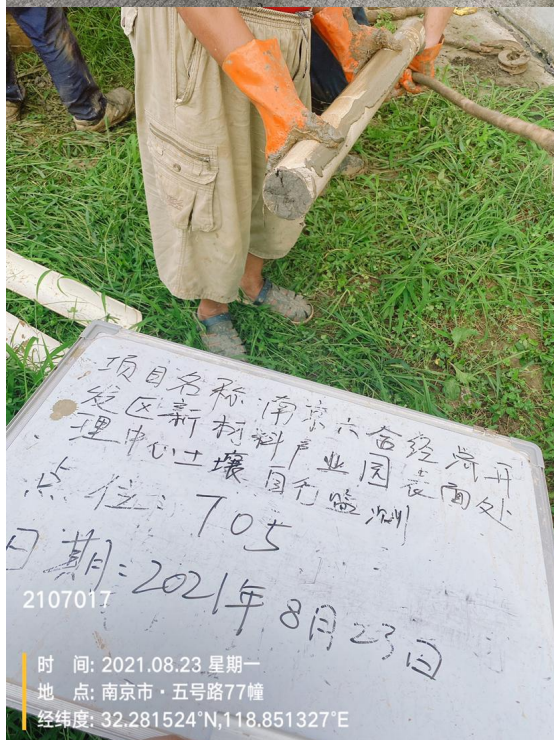 项目名称:南京六合经济开
发区新材料产业园表面处
理中心土壤自行监测
点位: T05
日期: 2021年8月23日
2107017
时 间: 2021.08.23 星期一
地 点: 南京市·五号路77幢
经纬度: 32.281524°N,118.851327°E